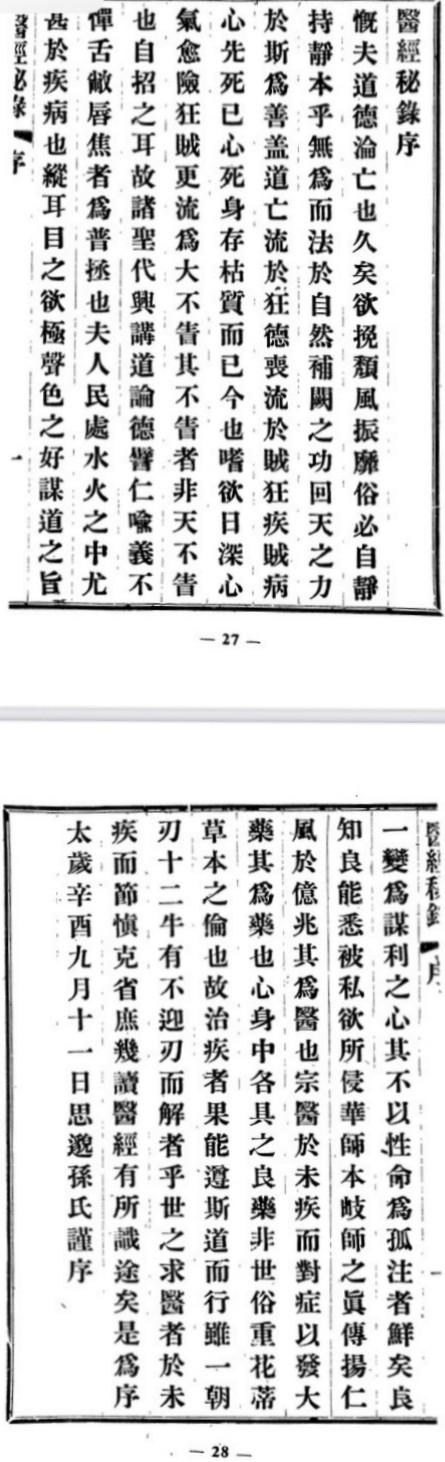 醫經秘錄序
慨夫道德淪亡也久矣欲挽頹風振靡俗必自靜
持靜本乎無為而法於自然補闕之功回天之力
於斯為善盖道亡流於狂德喪流於賊狂疾賊病
心先死已心死身存枯質而已今也嗜欲日深心
氣愈險狂賊更流為大不眚其不眚者非天不眚
也自招之耳故諸聖代興講道論德譬仁喩義不
憚舌敝唇焦者為普拯也夫人民處水火之中尤
甚於疾病也縱耳目之欲極聲色之好謀道之旨
醫經秘錄 序
一
— 27 —
醫經秘錄 序
一變為謀利之心其不以性命為孤注者鮮矣良
知良能悉被私欲所侵華師本岐師之眞傳揚仁
風於億兆其為醫也宗醫於未疾而對症以發大
藥其為藥也心身中各具之良藥非世俗重花蒂
草本之倫也故治疾者果能遵斯道而行雖一朝
刃十二牛有不迎刃而解者乎世之求醫者於未
疾而節慎克省庶幾讀醫經有所識途矣是為序
太歲辛酉九月十一日思邈孫氏謹序
— 28 —